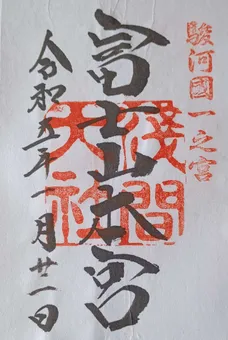 駿河國一之宮
富士山本宮
浅間大社
令和五年一月廿一日